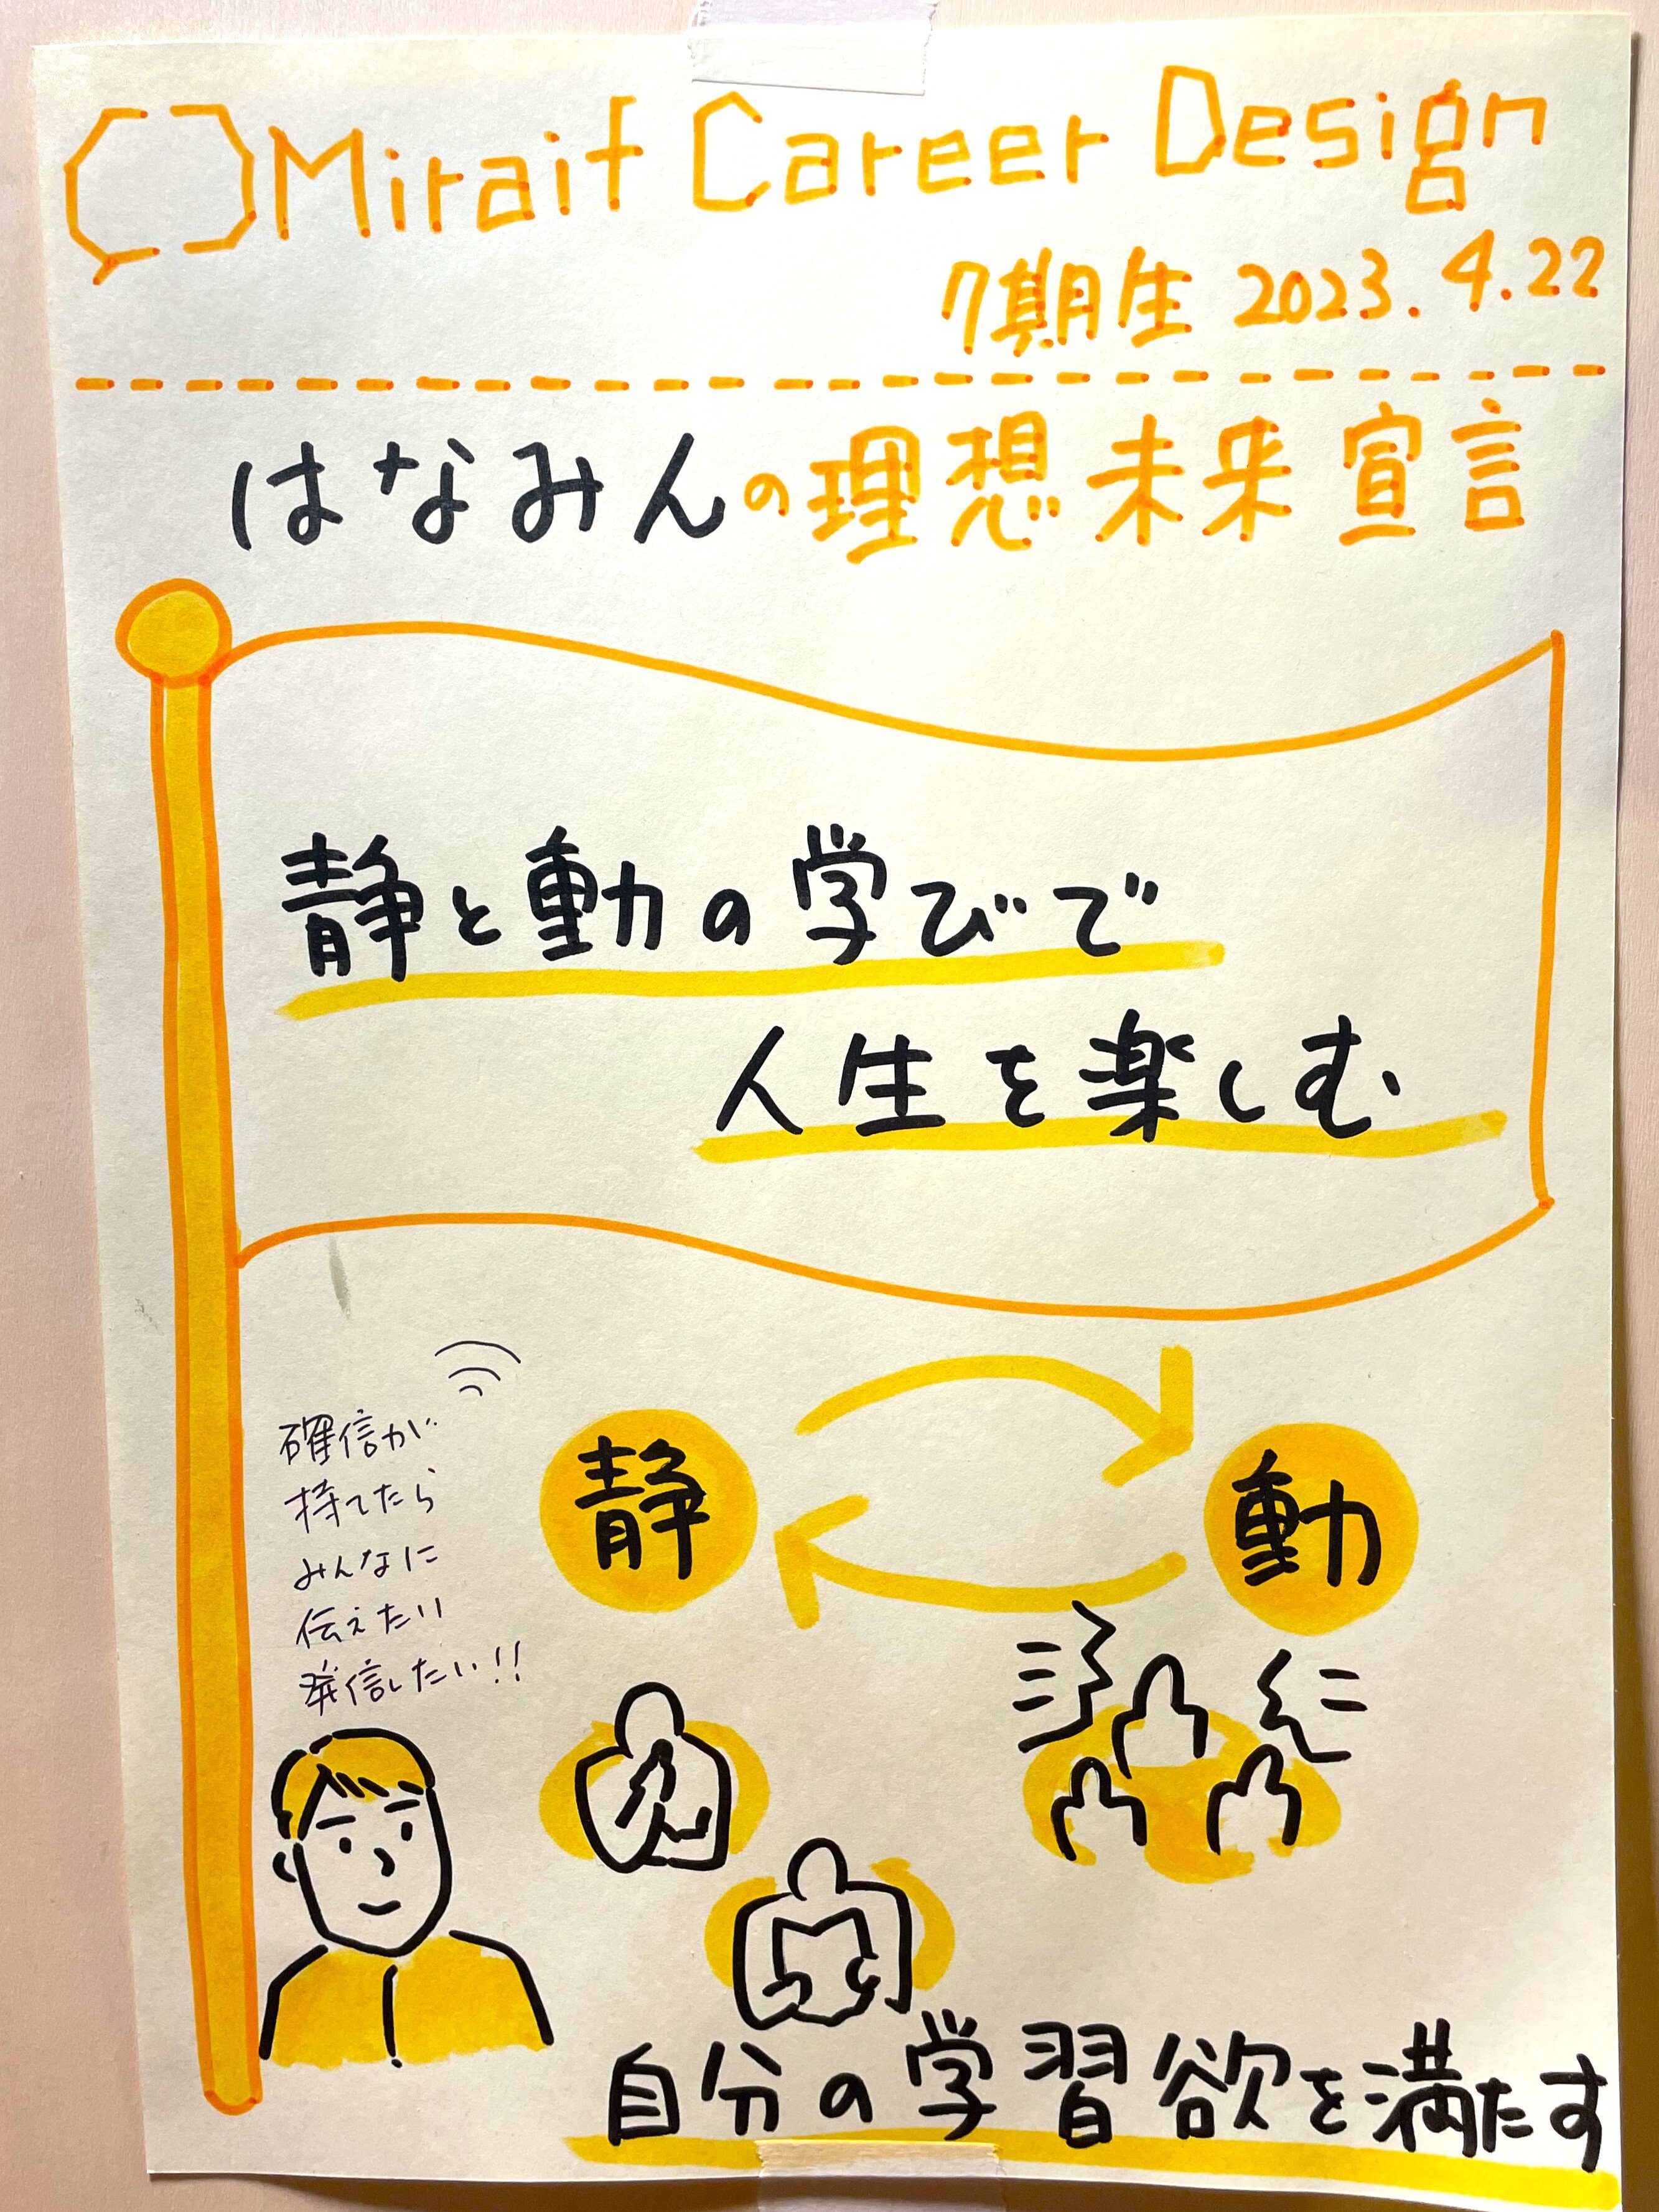 Miraif Career Design
7期生 2023.4.22
はなみんの理想未来宣言
静と動の学びで
人生を楽しむ
確信が
持てたら
みんなに
伝えたい
発信したい!!
静
動
自分の学習欲を満たす